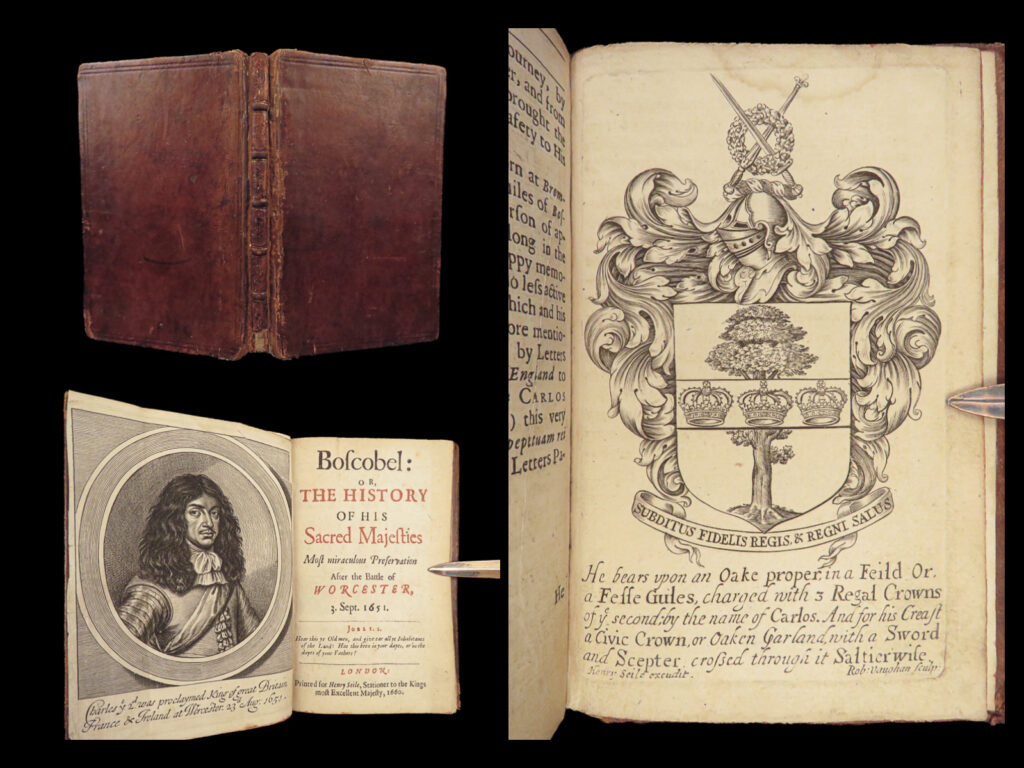 Charles yᵉ 2ᵈ was proclaymed King of great Britain
France & Ireland at Worcester. 23ᵈ Aug. 1651.
Boſcobel:
OR,
THE HISTORY
OF HIS
Sacred Majeſties
Moſt miraculous Preſervation
After the Battle of
WORCESTER,
3. Sept. 1651.
JOEL 1. 2.
Hear this ye Old men, and give ear all ye Inhabitants
of the Land: Hath this been in your dayes, or in the
dayes of your Fathers?
LONDON:
Printed for Henry Seile, Stationer to the Kings
moſt Excellent Majeſty, 1660.
ourney, by
er, and from
brought the
afety to His
rn at Brom-
miles of Boſ-
rſon of ap-
long in the
ppy memo-
o leſs active
hich and his
ore mentio-
by Letters
England to
CARLOS
) this very
perpetuam rei
Letters Pa-
He
SUBDITUS FIDELIS REGIS, & REGNI SALUS
He bears upon an Oake proper, in a Feild Or,
a Feſſe Gules, charged with 3 Regal Crowns
of yᵉ second, by the name of Carlos. And for his Creast
a Civic Crown, or Oaken Garland, with a Sword
and Scepter croſsed through it Saltierwise.
Henry Seile excudit. Rob: Vaughan sculp: